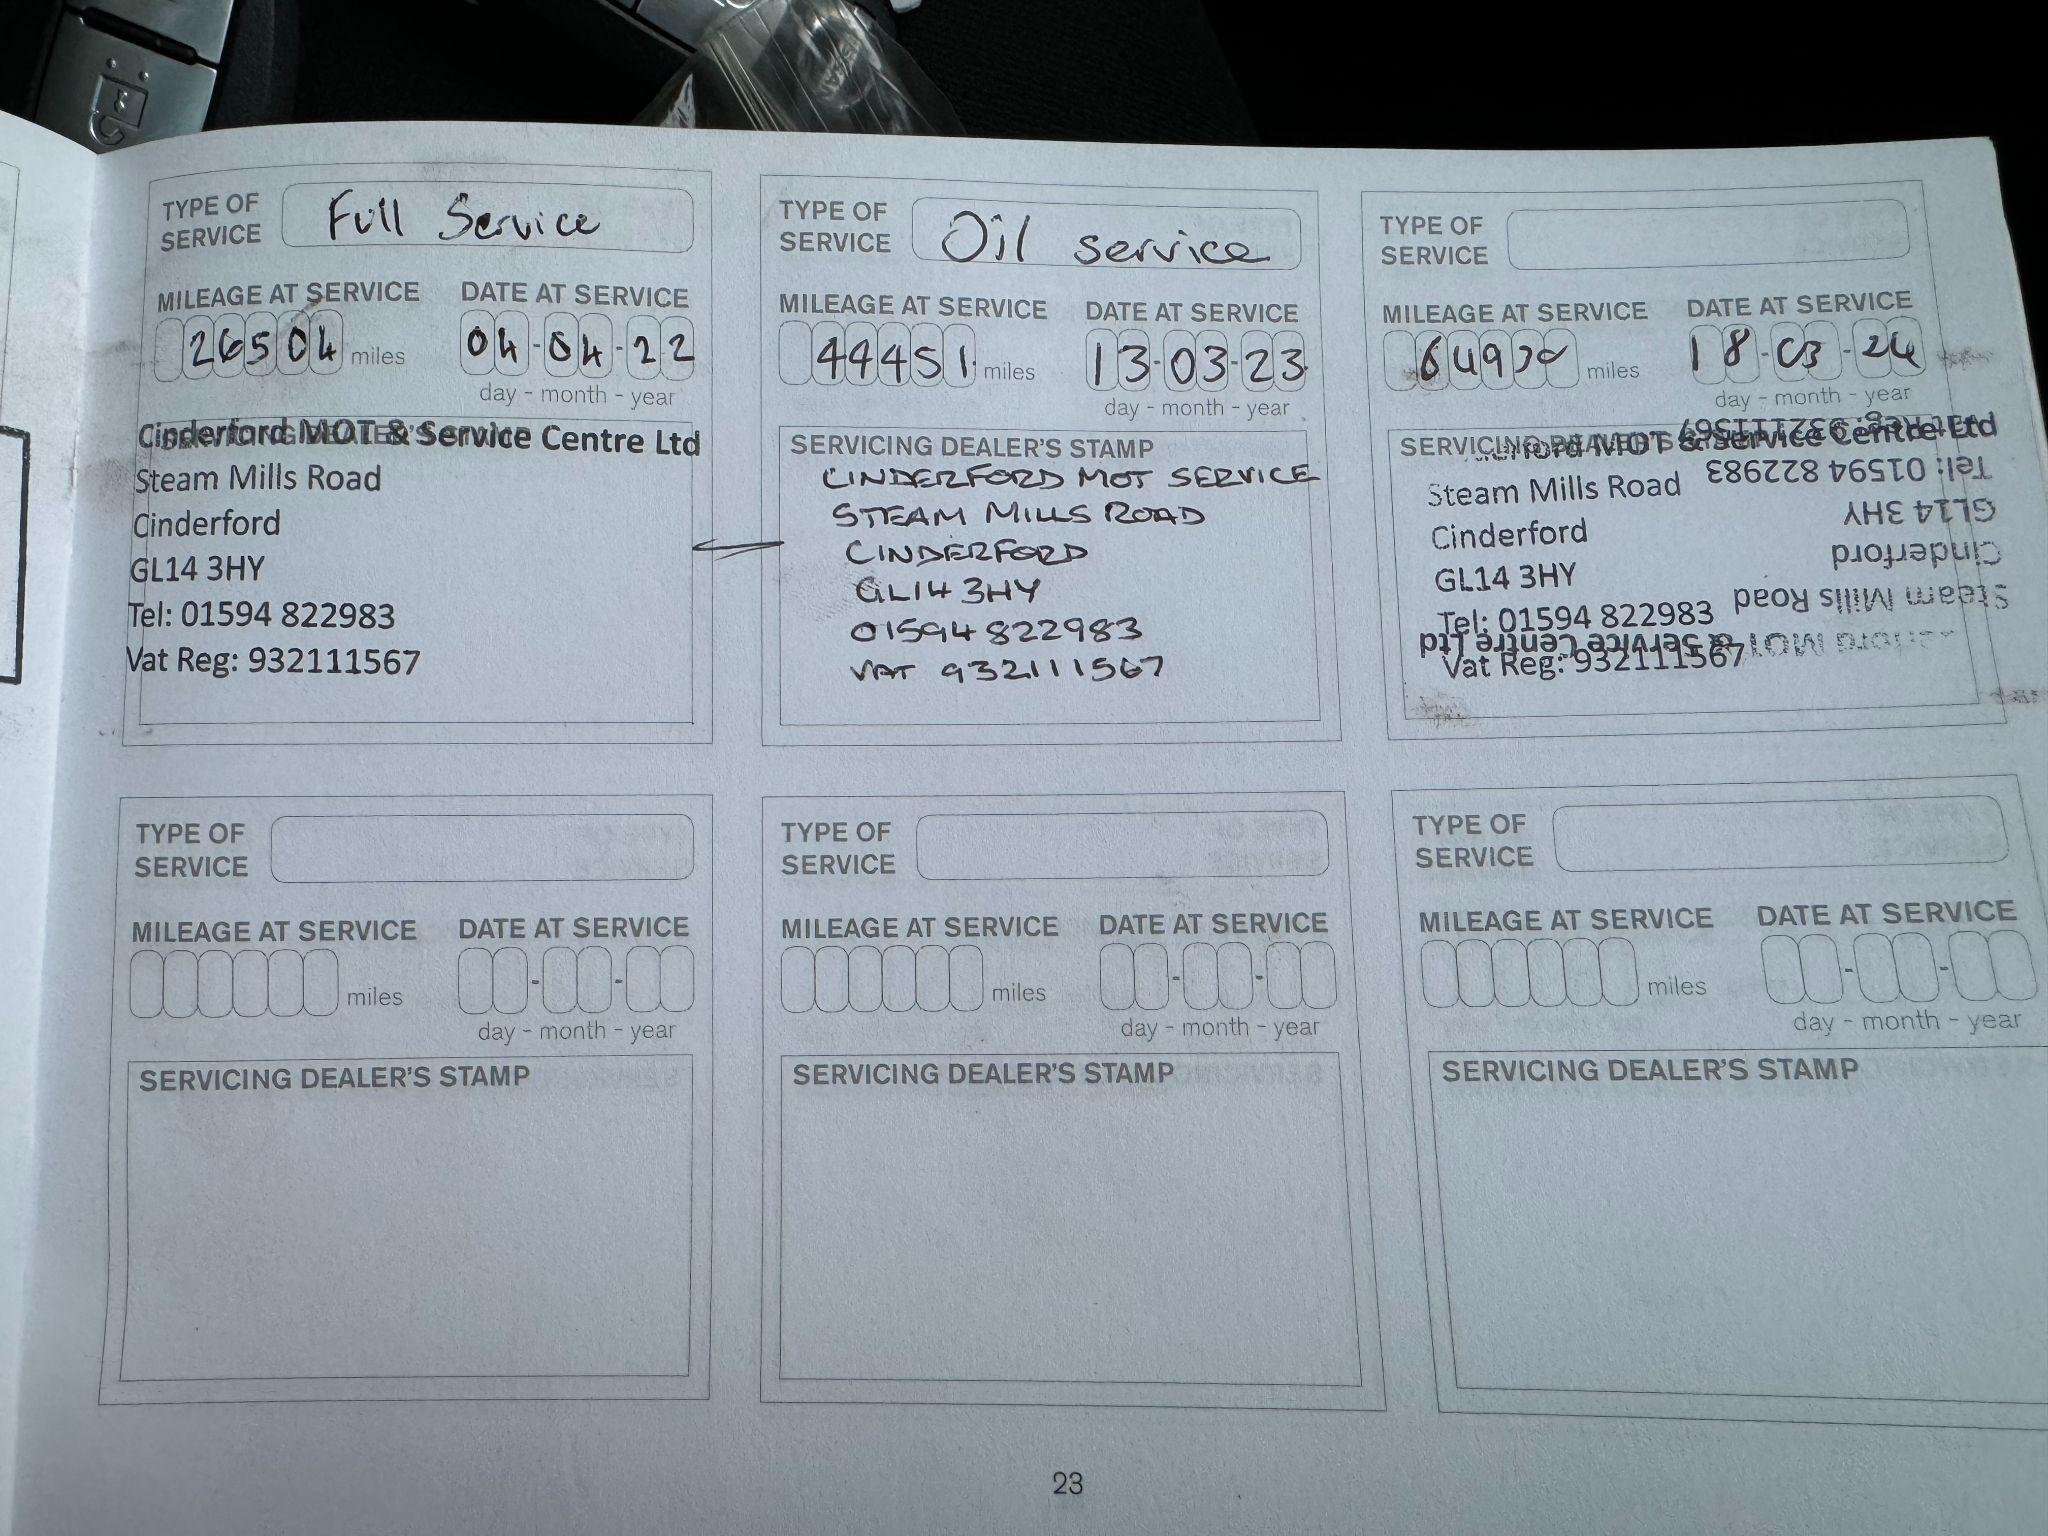 TYPE OF SERVICE Full Service
MILEAGE AT SERVICE DATE AT SERVICE
26504 miles 04-04-22
day - month - year
SERVICING DEALER'S STAMP
Cinderford MOT & Service Centre Ltd
Steam Mills Road
Cinderford
GL14 3HY
Tel: 01594 822983
Vat Reg: 932111567
TYPE OF SERVICE Oil service
MILEAGE AT SERVICE DATE AT SERVICE
44451 miles 13-03-23
day - month - year
SERVICING DEALER'S STAMP
CINDERFORD MOT SERVICE
STEAM MILLS ROAD
CINDERFORD
GL14 3HY
01594 822983
VAT 932111567
TYPE OF SERVICE
MILEAGE AT SERVICE DATE AT SERVICE
miles 18-03-24
day - month - year
SERVICING DEALER'S STAMP
MOT & Service Centre Ltd
Steam Mills Road
Cinderford
GL14 3HY
Tel: 01594 822983
Vat Reg: 932111567
MOT & Service Centre Ltd
Steam Mills Road
Cinderford
GL14 3HY
Tel: 01594 822983
Vat Reg: 932111567
TYPE OF SERVICE
MILEAGE AT SERVICE DATE AT SERVICE
miles
day - month - year
SERVICING DEALER'S STAMP
TYPE OF SERVICE
MILEAGE AT SERVICE DATE AT SERVICE
miles
day - month - year
SERVICING DEALER'S STAMP
TYPE OF SERVICE
MILEAGE AT SERVICE DATE AT SERVICE
miles
day - month - year
SERVICING DEALER'S STAMP
23